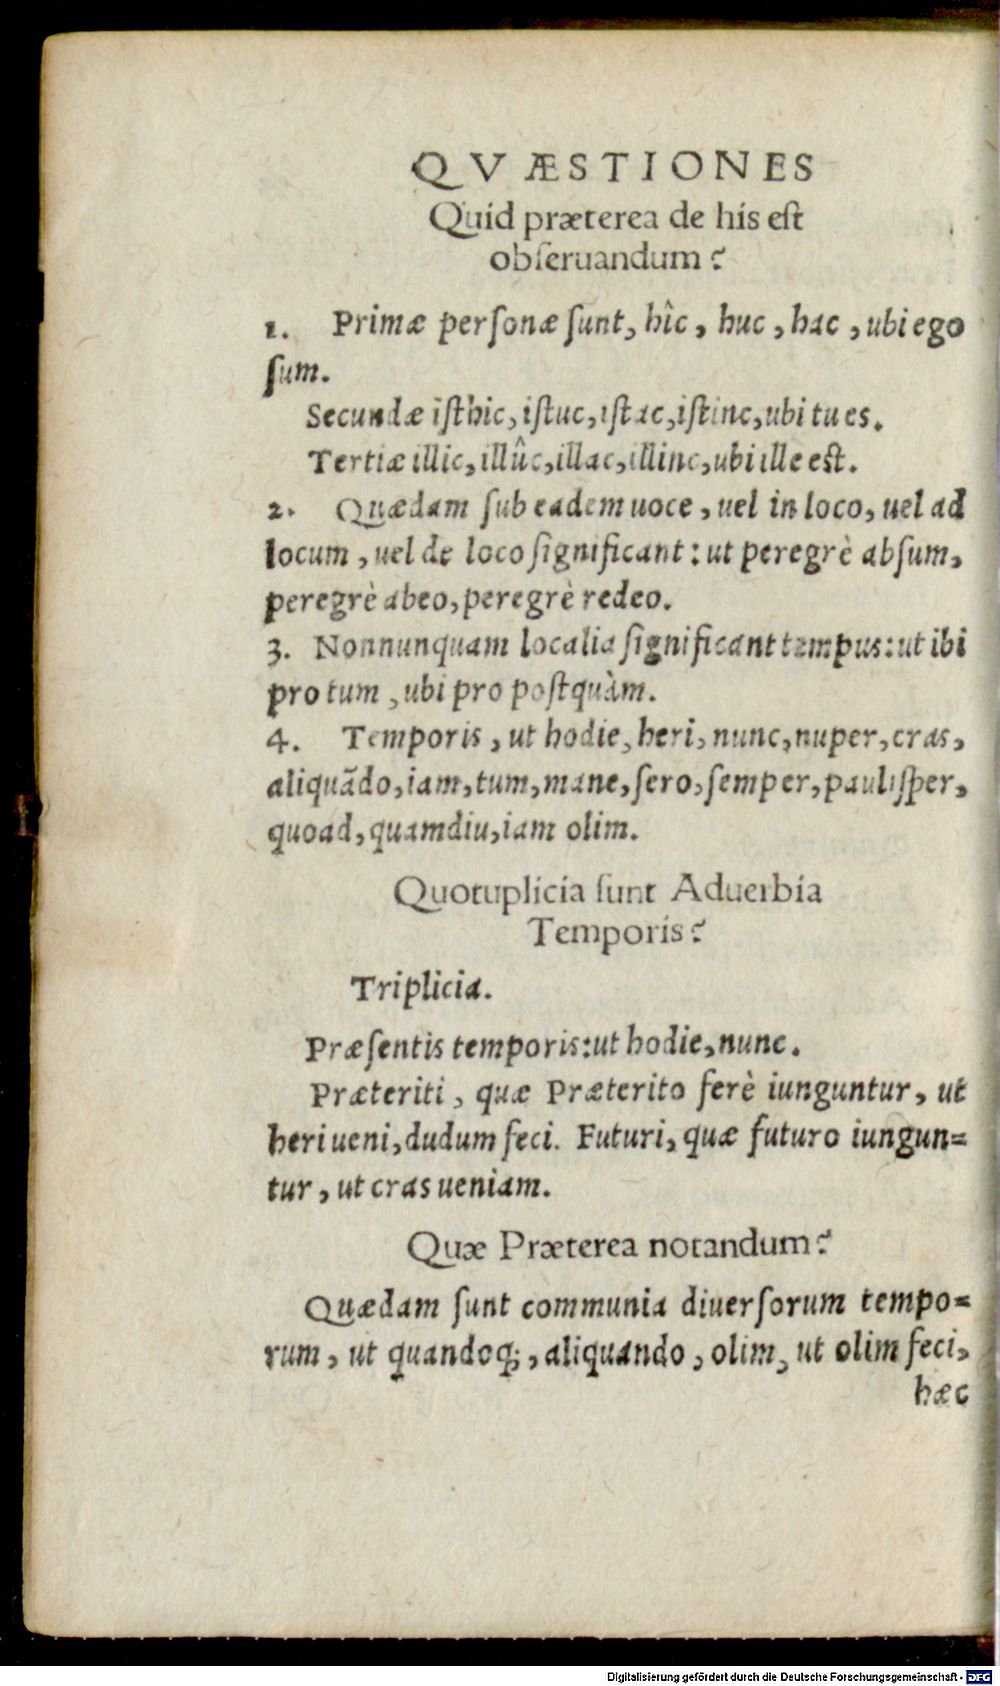 QVÆSTIONES
Quid præterea de his eſt
obſeruandum?
1. Primæ perſonæ ſunt, hîc, huc, hac, ubi ego
ſum.
Secundæ iſthic, iſtuc, iſtac, iſtinc, ubi tu es.
Tertiæ illic, illûc, illac, illinc, ubi ille eſt.
2. Quædam ſub eadem uoce, uel in loco, uel ad
locum, uel de loco ſignificant: ut peregrè abſum,
peregrè abeo, peregrè redeo.
3. Nonnunquam localia ſignificant tempus: ut ibi
pro tum, ubi pro poſtquàm.
4. Temporis, ut hodie, heri, nunc, nuper, cras,
aliquãdo, iam, tum, mane, ſero, ſemper, pauliſper,
quoad, quamdiu, iam olim.
Quotuplicia ſunt Aduerbia
Temporis?
Triplicia.
Præſentis temporis: ut hodie, nunc.
Præteriti, quæ Præterito ferè iunguntur, ut
heri ueni, dudum feci. Futuri, quæ futuro iungun=
tur, ut cras ueniam.
Quæ Præterea notandum?
Quædam ſunt communia diuerſorum tempo=
rum, ut quandoq;, aliquando, olim, ut olim feci,
hæc
Digitalisierung gefördert durch die Deutsche Forschungsgemeinschaft - DFG